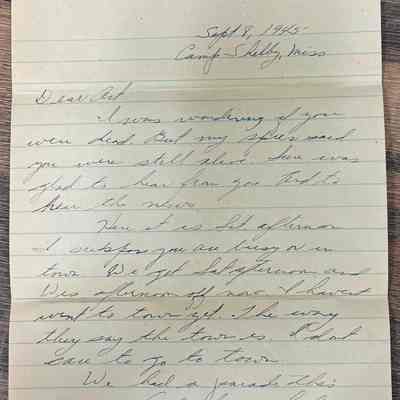 Sept 8, 1945
Camp Shelby, Miss
Dear Art
I was wondering if you
were dead. But my spies said
you were still alive. Sure was
glad to hear from you and to
hear the news
Here it is Sat afternoon
I suppose you are busy or in
town. We get Sat afternoon and
Wes afternoon off now. I havent
went to town yet. The way
they say the town is. I dont
care to go to town.
We had a parade this